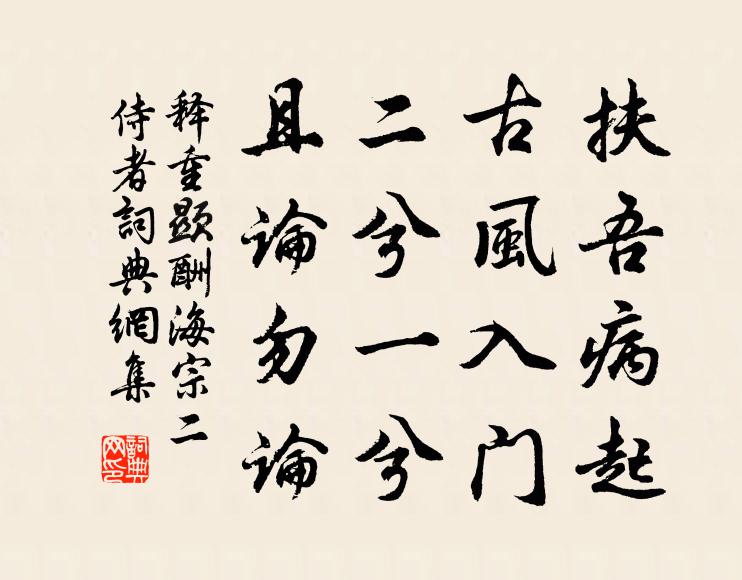 扶吾病起
古風入门
二兮一兮
且論勿論
释重顯酬海宗二
侍者詞典網集
詞典
网印